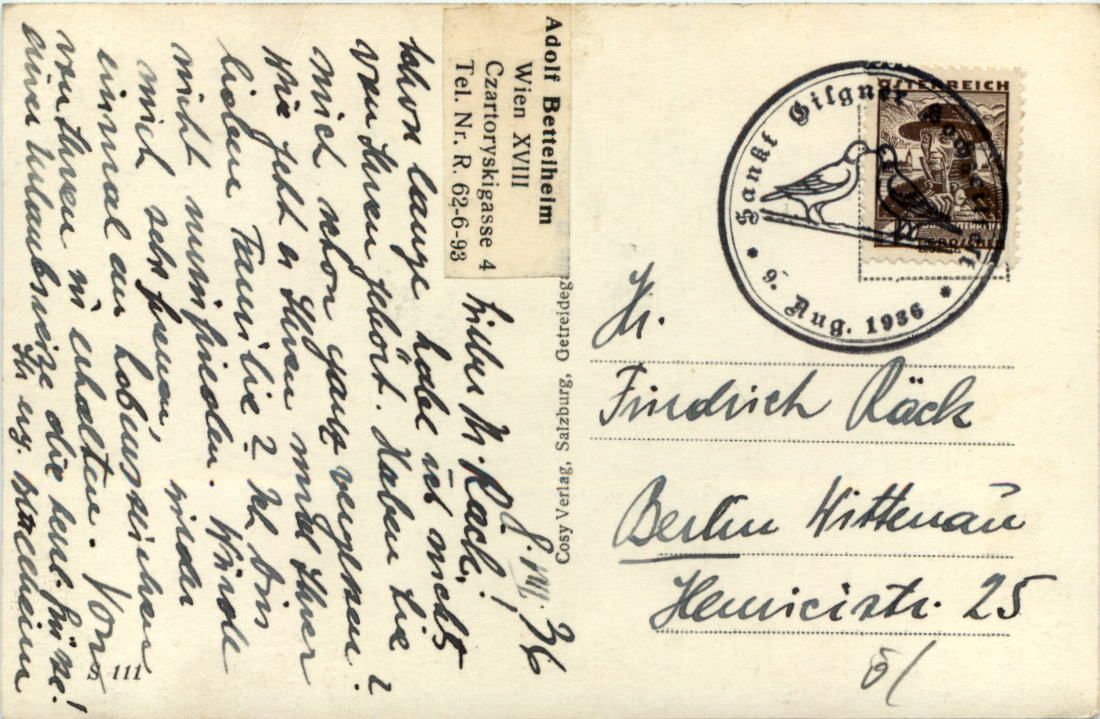 Adolf Bettelheim
Wien XVIII
Czartoryskigasse 4
Tel. Nr. R. 62-6-93
8. VIII. 36
Lieber Hr. Räck!
schon lange habe ich nichts
von Ihnen gehört. Haben Sie
mich schon ganz vergessen?
Wie geht es Ihnen und Ihrer
lieben Familie? Ich bin
nicht unzufrieden. Würde
mich sehr freuen, wieder
einmal ein Lebenszeichen
von Ihnen zu erhalten. Von
einer Urlaubsreise die herzl. Grüße!
Ihr erg. Bettelheim
S 111
Cosy Verlag, Salzburg, Getreideg.
ÖSTERREICH
GROSCHEN
Sankt Gilgner
* 9. Aug. 1936 *
Hr.
Friedrich Räck
Berlin Wittenau
Hermicistr. 25